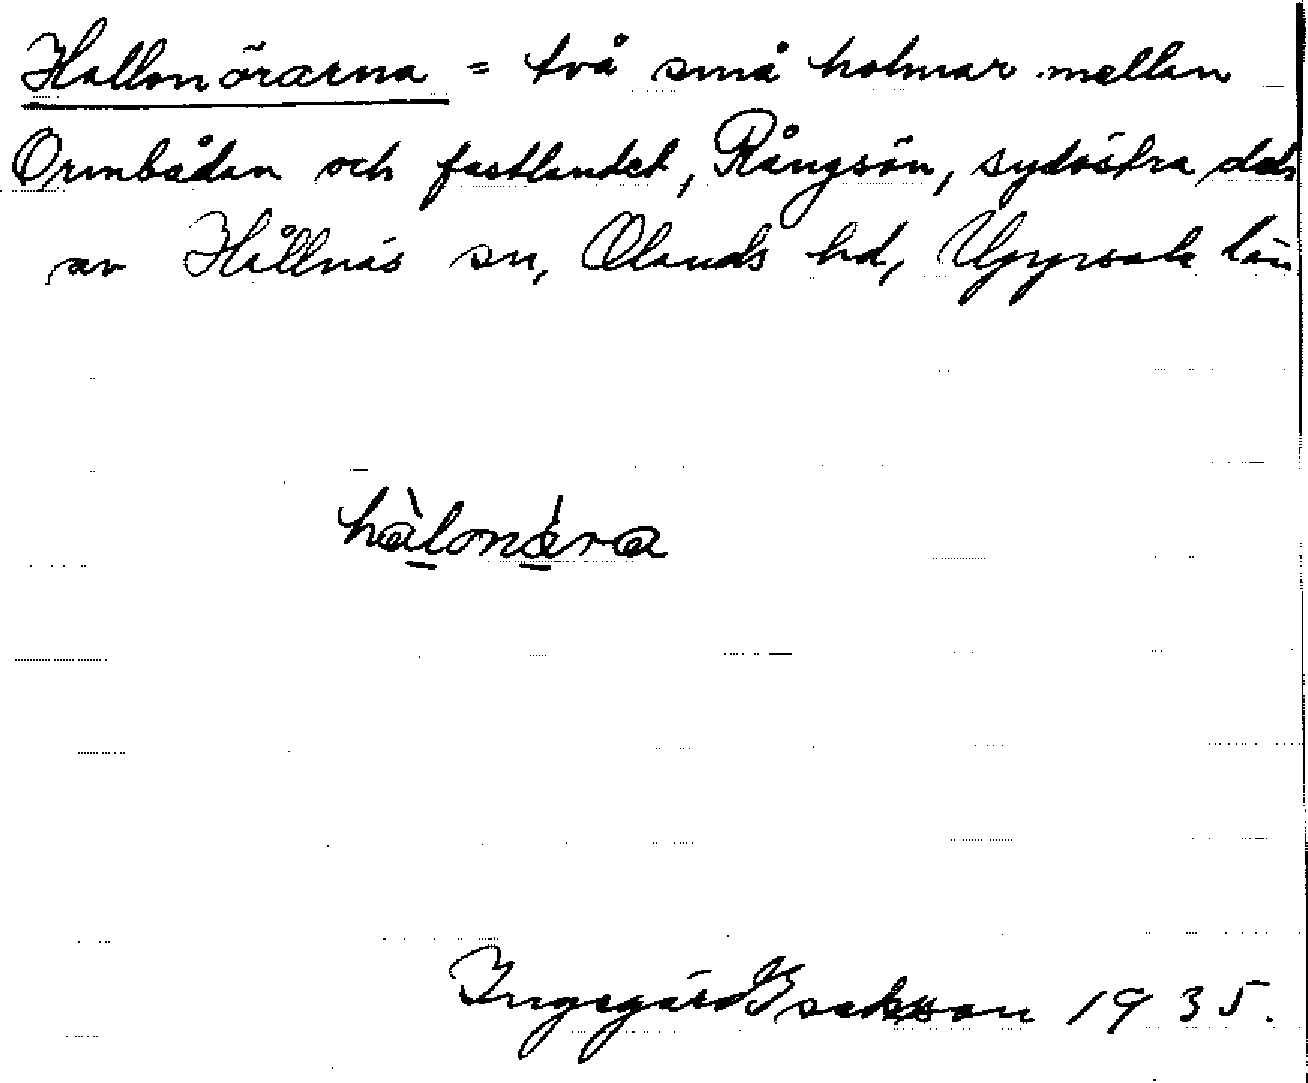 Hallonörarna = två små holmar mellan
Ormbådan och fastlandet, Rångsön, sydöstra del
av Hållnäs sn, Olands hd, Uppsala län
hàlonǿra
Ingegärd Isaksson 1935.